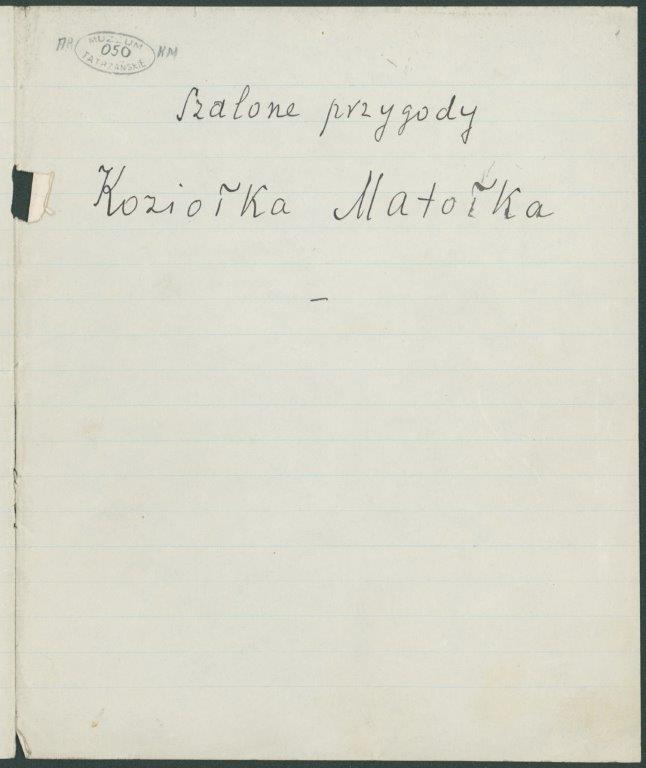 AR MUZEUM KM
050
TATRZAŃSKIE
Szalone przygody
Koziołka Matołka
—